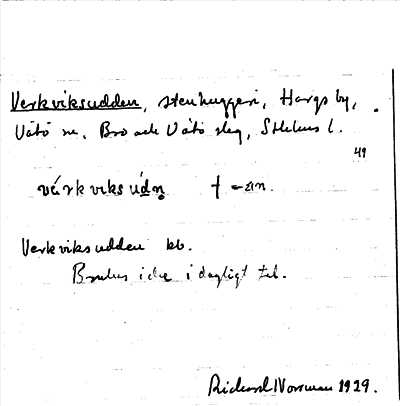 Verkviksudden, stenhuggeri, Hargs by,
Vätö sn, Bro och Vätö slg, Sthlms l.
49
Verkviksudden kb.
Brukas icke i dagligt tal.
Richard Norrman 1929.